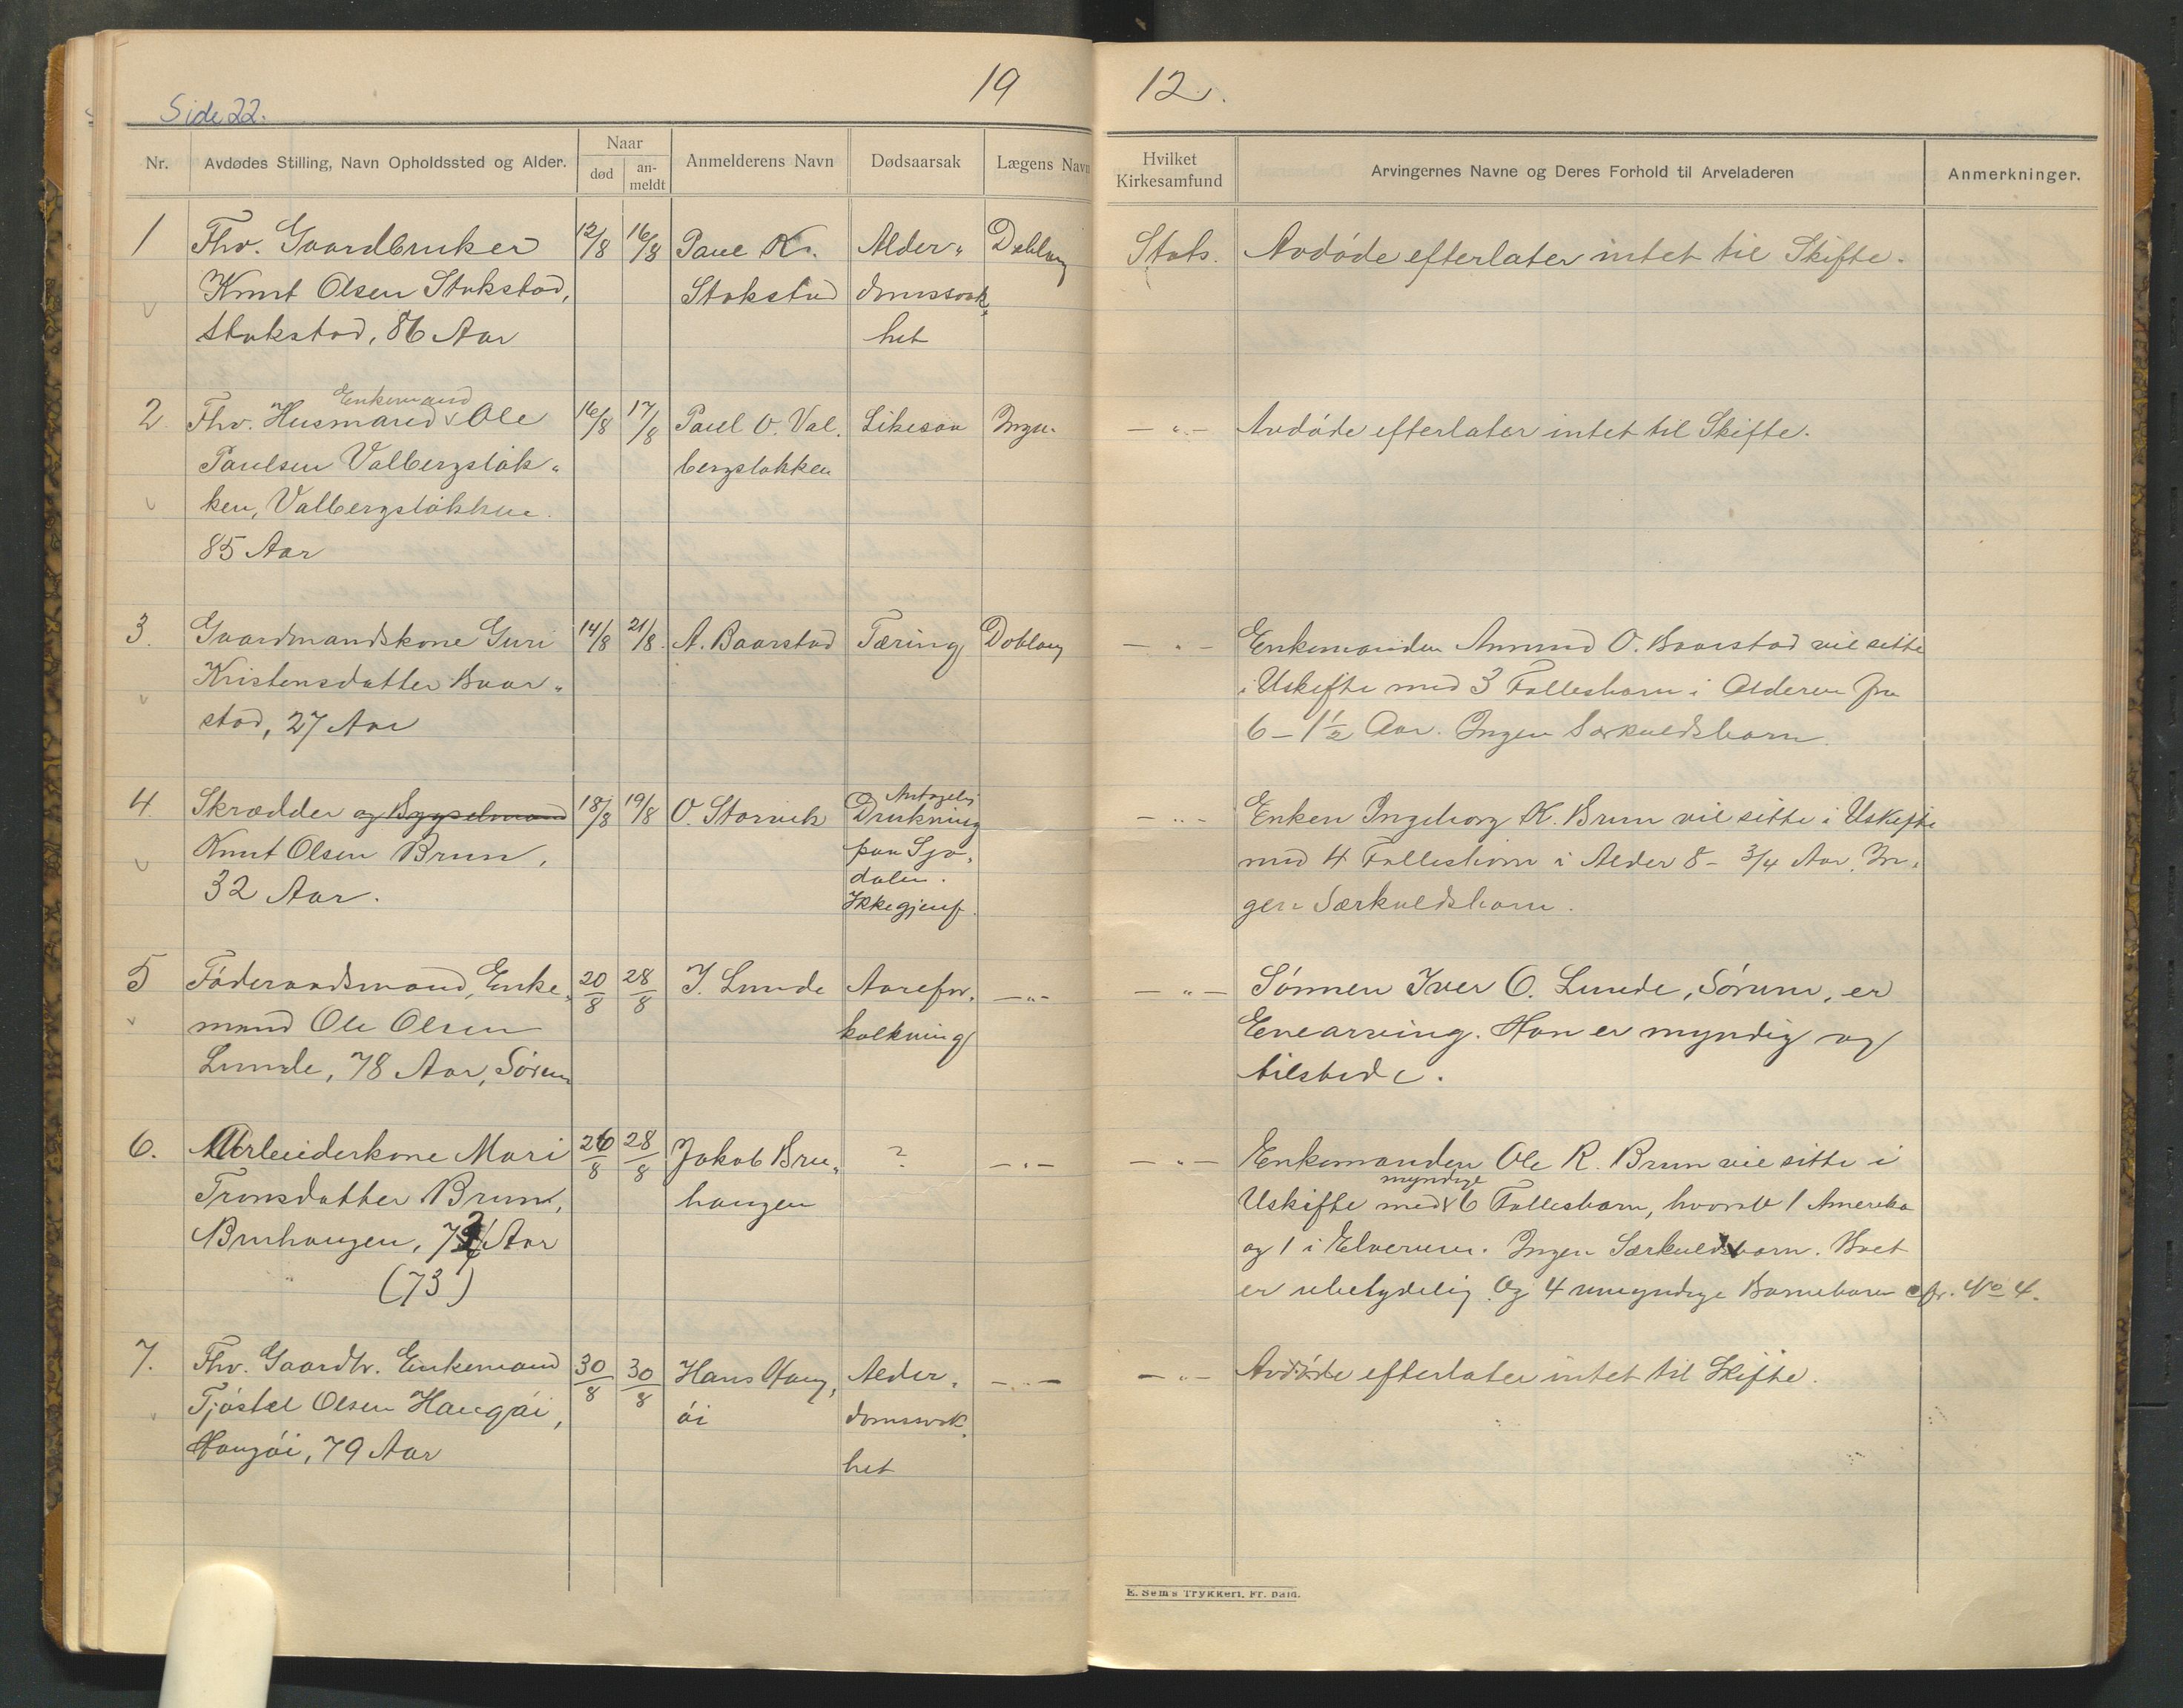 Side 22.
19
12.
Nr.
Avdødes Stilling, Navn Opholdssted og Alder.
Naar
død
an-
meldt
Anmelderens Navn
Dødsaarsak
Lægens Navn
Hvilket
Kirkesamfund
Arvingernes Navne og Deres Forhold til Arveladeren
Anmerkninger.
1 Fhv. Gaardbruker 12/8 16/8 Paul K. Alder- Doblaug Stats. Avdøde efterlater intet til Skifte.
Knut Olsen Stokstad, Stokstad domssvak-
Stokstad, 86 Aar het
Enkemand
2 Fhv. Husmand Ole 16/8 17/8 Paul O. Val- Likesaa Ingen — „ — Avdøde efterlater intet til Skifte.
Paulsen Valbergsløk- bergsløkken
ken, Valbergsløkken.
85 Aar
3. Gaardmandskone Guri 14/8 21/8. A. Baarstad Tæring Doblaug — „ — Enkemanden Amund O. Baarstad vil sitte
Kristensdatter Baar- i Uskifte med 3 Fællesbarn i Alderen fra
stad, 27 Aar 6 – 1½ Aar. Ingen Særkuldsbarn.
Antagelig
4. Skrædder og Bygselmand 18/8 19/8 O. Storvik Drukning — „ — Enken Ingeborg K. Brun vil sitte i Uskifte
Knut Olsen Brun, paa Sjo- med 4 Fællesbarn i Alder 8 – 3/4 Aar. In-
32 Aar. dalen. gen Særkuldsbarn.
Ikke gjenf.
5 Føderaadsmand, Enke- 20/8 28/8 I. Lunde Aarefor- — „ — — „ — Sønnen Iver O. Lunde, Sørum, er
mand Ole Olsen kalkning Enearving. Han er myndig og
Lunde, 78 Aar, Sørum tilstede.
6. Arbeiderkone Mari 26/8 28/8 Jakob Bru- ? — „ — — „ — Enkemanden Ole R. Brun vil sitte i
myndige
Tronsdatter Brun, haugen Uskifte med 6 Fællesbarn, hvorav 1 Amerika
Bruhaugen, 7 Aar og 1 i Elverum. Ingen Særkuldsbarn. Boet
(73) er ubetydelig. Og 4 umyndige Barnebarn cfr. No 4.
7. Fhv. Gaardbr. Enkemand 30/8 30/8 Hans Haug- Alder- — „ — — „ — Avdøde efterlater intet til Skifte.
Tjøstel Olsen Haugøi, øi domssvak-
Haugøi, 79 Aar het
E. Sems Trykkeri, Fr.hald.